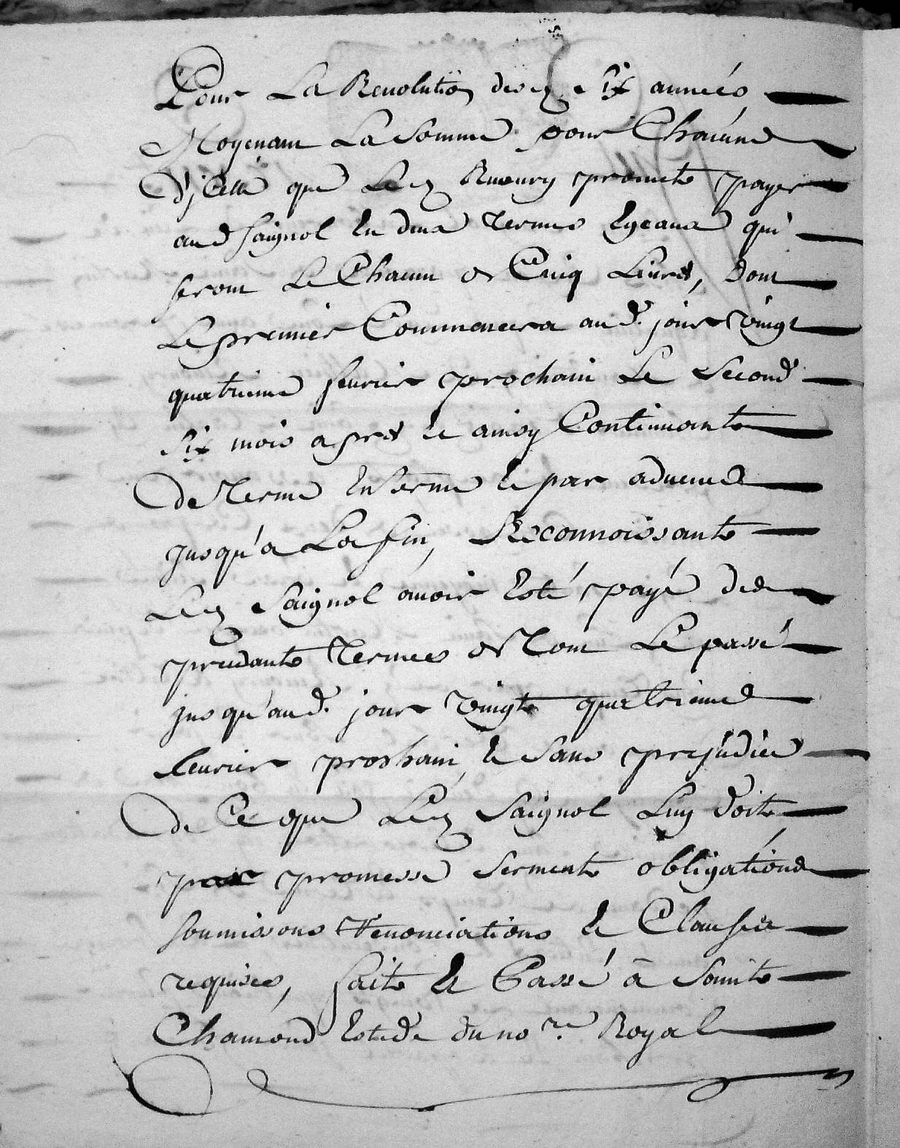 Pour La Revolution desd. Six années
Moyenant La Somme pour Chacune
D'jcelle que Led. promet payer
aud. Saignol En deux Termes Egeaux qui
seront Le Chacun de Cinq Livres, Dont
Le premier Commencera aud. jour Vingt
quatrieme fevrier prochain Le Second
Six mois apres et ainsy Continuant
de Terme En Terme et par advence
jusqu'a La fin, Reconnoissant
Led. Saignol avoir Esté payé des
Termes de Tout Le passé
jusqu'aud. jour Vingt quatrieme
fevrier prochain, et Sans prejudice
de Ce que Led. Saignol Luy Doit
par promesse Serment obligations
soumissons Renonciations et Clauses
requises, fait et Passé à Saint
Chamond Estude du no.re Royal